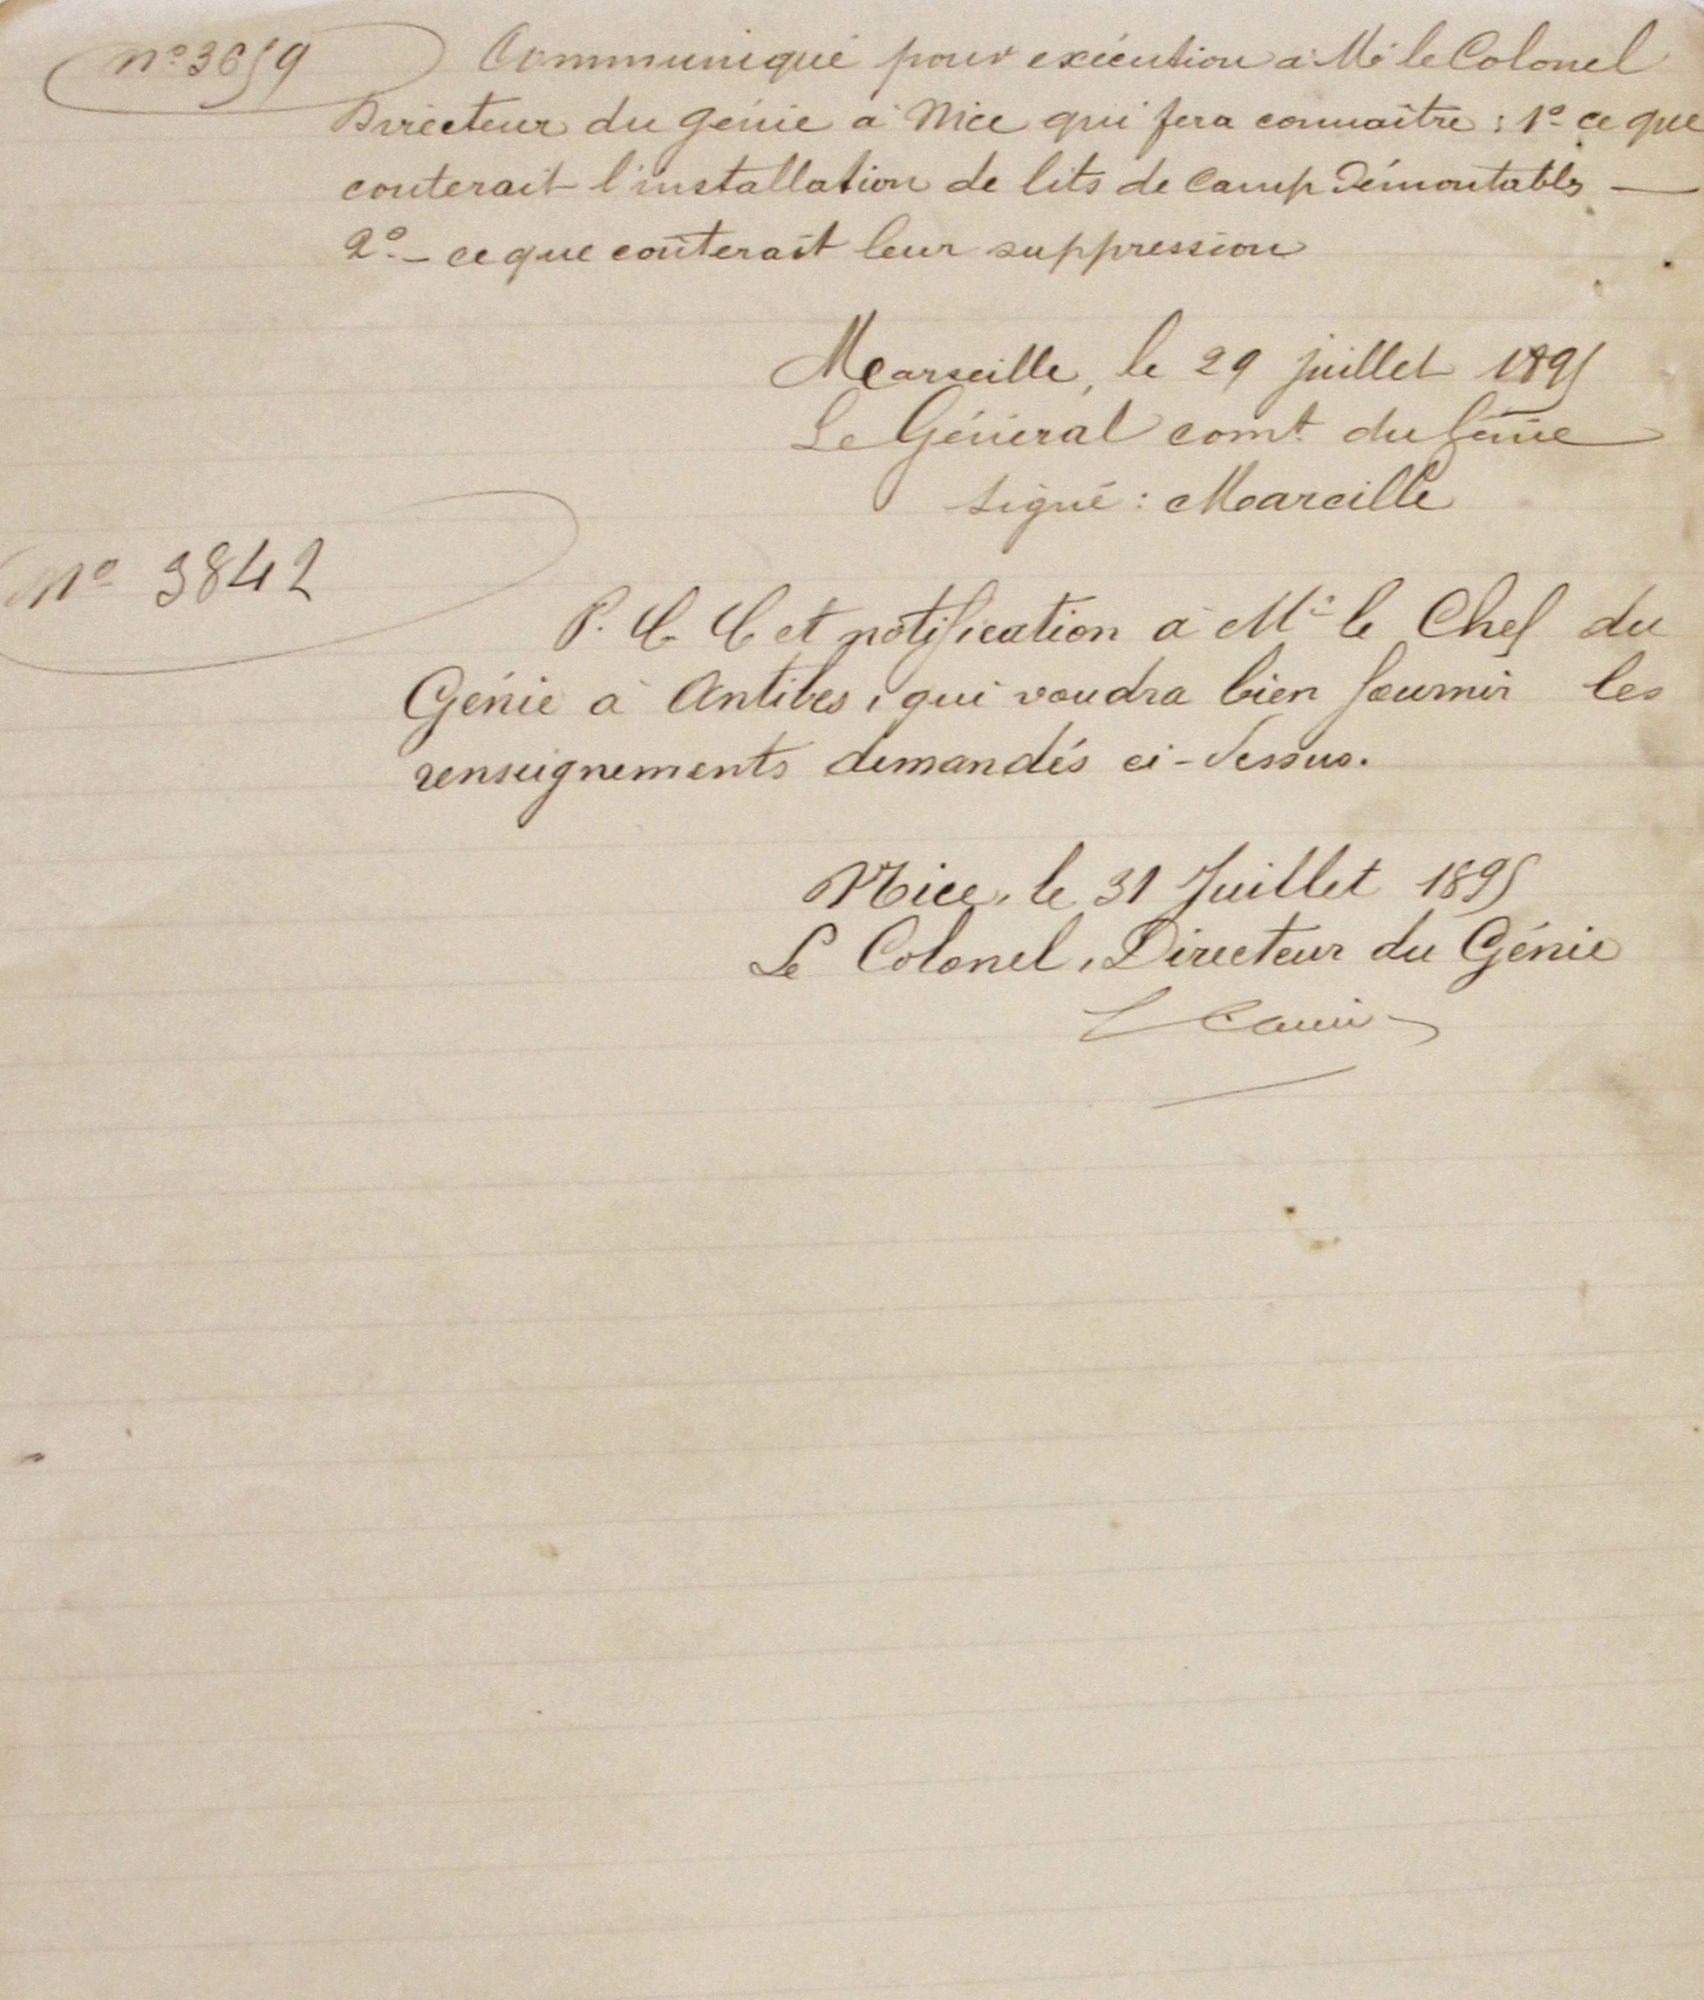 n° 3659
Communiqué pour exécution à Mr le Colonel
Directeur du génie à Nice qui fera connaître : 1° ce que
couterait l'installation de lits de camp démontables —
2° - ce que coûterait leur suppression
Marseille, le 29 juillet 1895
Le Général comt du Génie
signé : Mareille
N° 3842
P. C. C et notification à Mr le Chef du
Génie à Antibes, qui voudra bien fournir les
renseignements demandés ci-dessus.
Nice, le 31 Juillet 1895
Le Colonel, Directeur du Génie